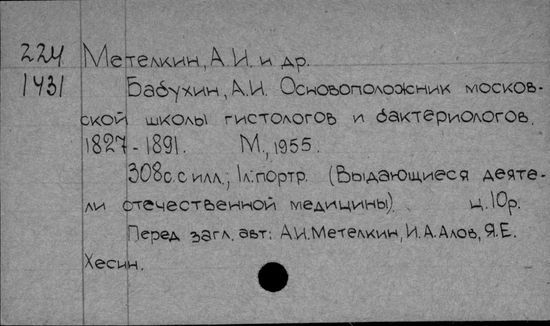 224 Метелкин, А.И. и др.
1431 Бабухин, А.И. Основоположник москов-
ской школы гистологов и бактериологов.
1827-1891. М., 1955.
308с. с илл.; 1л. портр. (Выдающиеся деяте-
ли отечественной медицины). ц. 10р.
Перед загл. авт.: А.И. Метелкин, И.А. Алов, Я.Е.
Хесин.